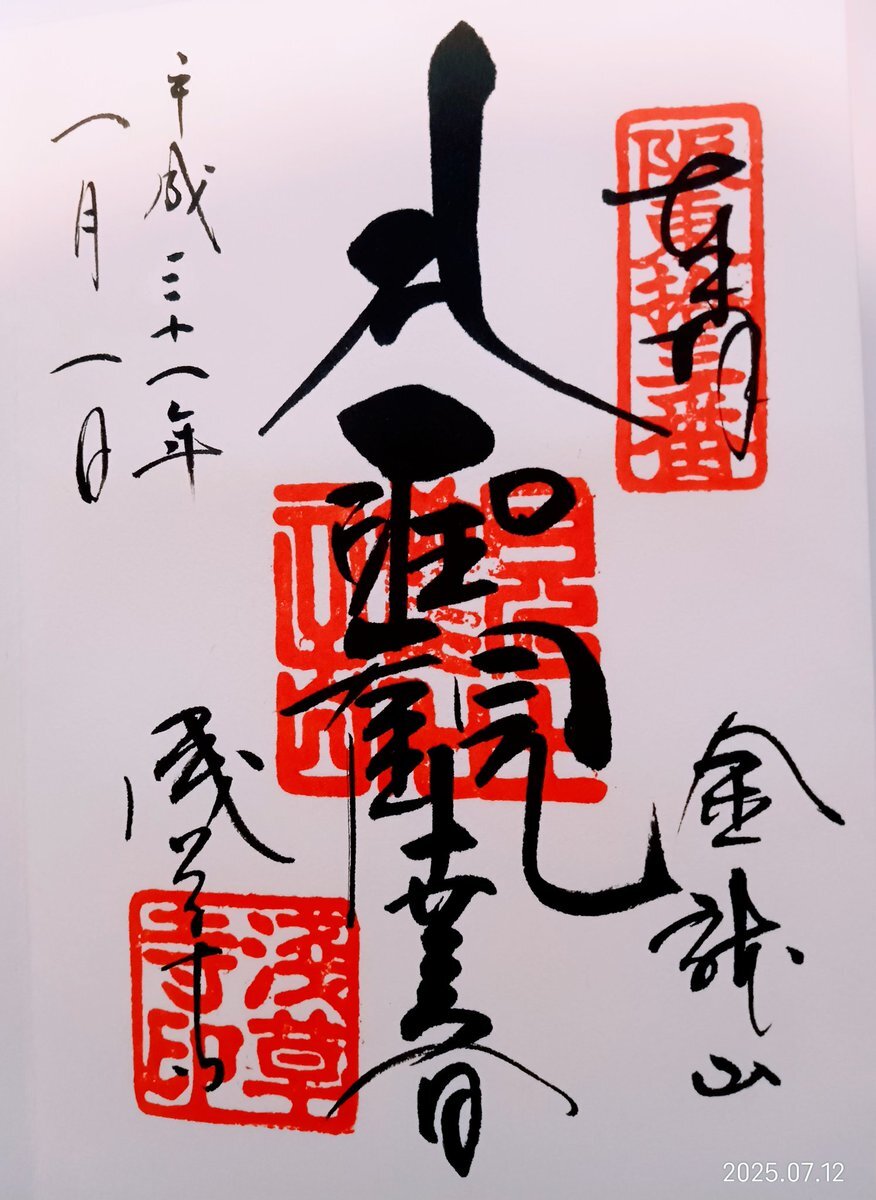 奉拝
阪東拾三番
金龍山
聖観世音
平成三十一年
一月一日
浅草寺
浅草寺印
2025.07.12